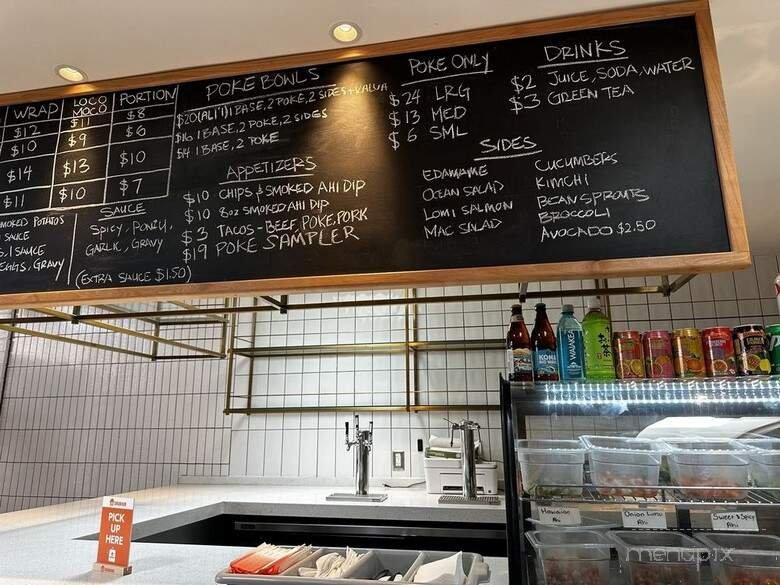 WRAP LOCO MOCO PORTION
$12 $11 $8
$10 $9 $6
$14 $13 $10
$11 $10 $7
SMOKED POTATOS
SAUCE
S, 1 SAUCE
EGGS, GRAVY
SAUCE
SPICY, PONZU,
GARLIC, GRAVY
(EXTRA SAUCE $1.50)
POKE BOWLS
$20 (ALI'I) 1 BASE, 2 POKE, 2 SIDES + KALUA
$16 1 BASE, 2 POKE, 2 SIDES
$14 1 BASE, 2 POKE
APPETIZERS
$10 CHIPS & SMOKED AHI DIP
$10 8oz SMOKED AHI DIP
$3 TACOS - BEEF, POKE, PORK
$19 POKE SAMPLER
POKE ONLY
$24 LRG
$13 MED
$6 SML
DRINKS
$2 JUICE, SODA, WATER
$3 GREEN TEA
SIDES
EDAMAME
OCEAN SALAD
LOMI SALMON
MAC SALAD
CUCUMBERS
KIMCHI
BEAN SPROUTS
BROCCOLI
AVOCADO $2.50
KONA
WAIAKEA
PICK
UP
HERE
Hawaiian
Ahi
Onion Limu
Ahi
Sweet & Spicy
Ahi
menupix